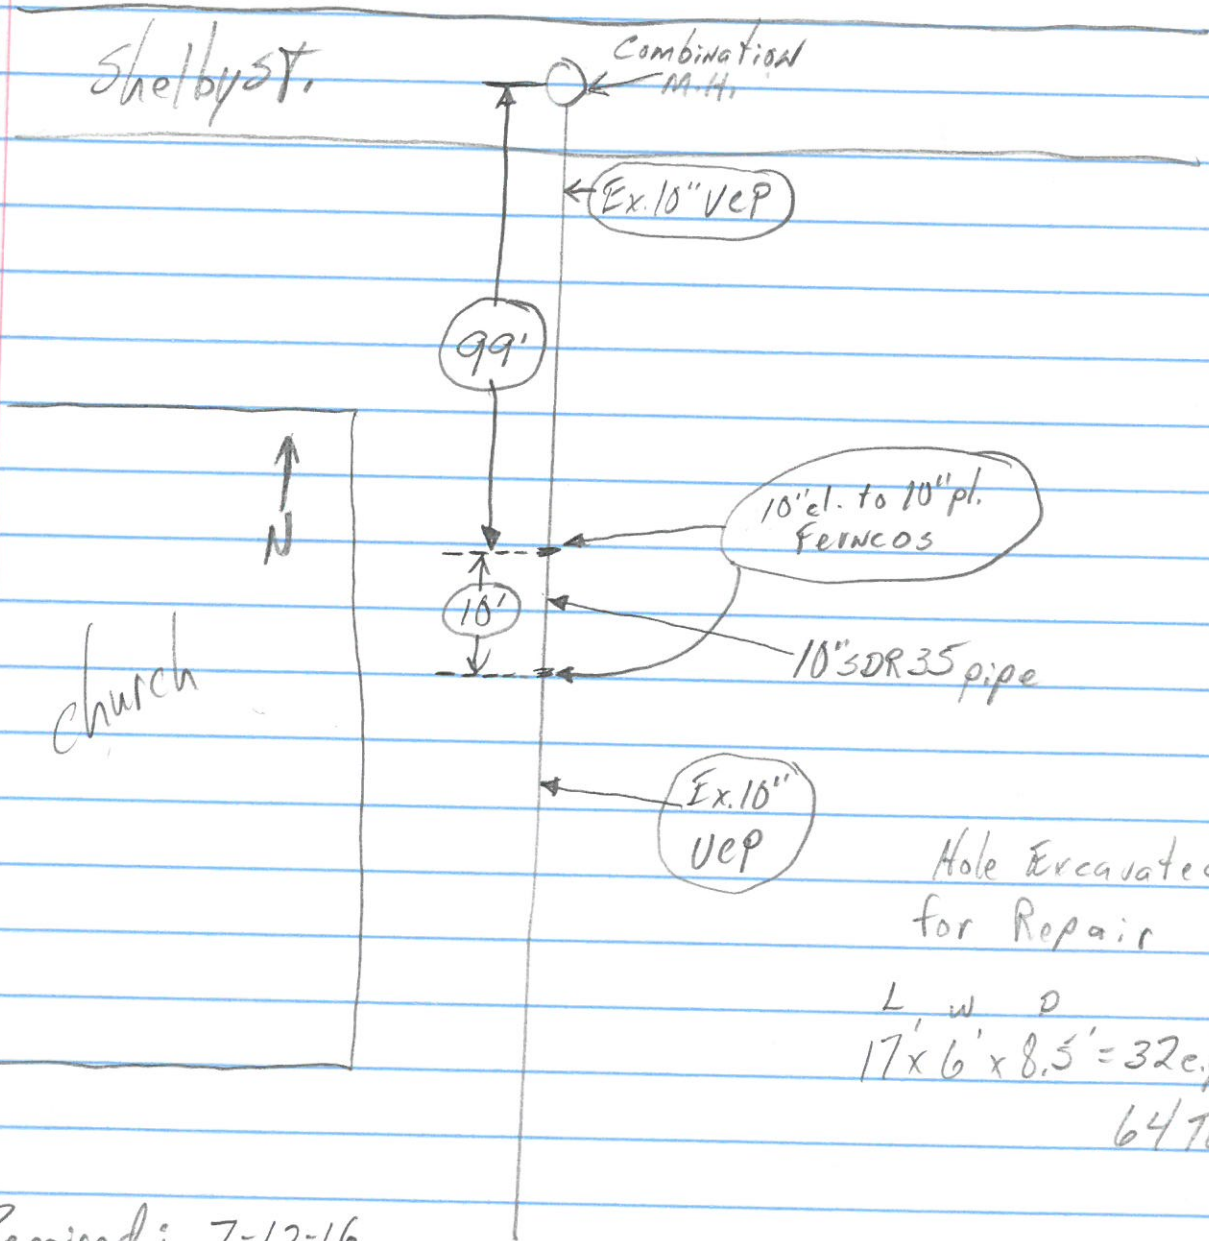 Shelby ST.
Combination
M.H.
Ex. 10" VCP
99'
N
10" cl. to 10" pl.
Ferncos
10'
10" SDR 35 pipe
church
Ex. 10"
VCP
Hole Excavated
for Repair
L W D
17' x 6' x 8.5' = 32 c.
64 T
7-12-16